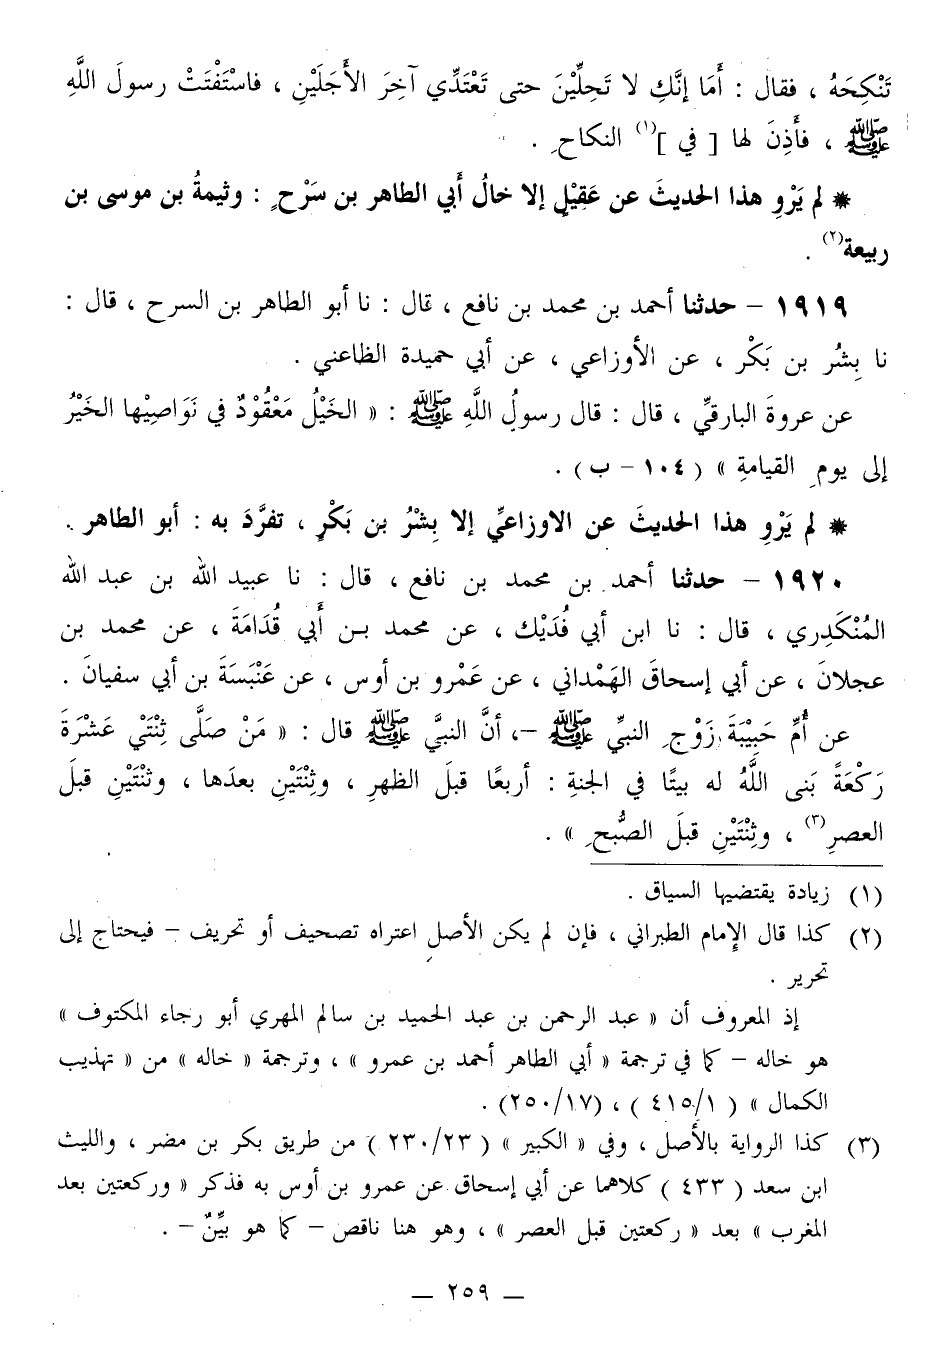 تَنْكِحَهُ ، فقال : أَمَا إنَّكِ لا تَحِلِّيْنَ حتى تَعْتَدِّي آخِرَ الأَجَلَيْنِ ، فاسْتَفْتَتْ رسولَ اللَّهِ
ﷺ ، فأَذِنَ لها [ في ](١) النكاحِ .
* لم يَرْوِ هذا الحديثَ عن عَقِيْلٍ إلا خالُ أبي الطاهر بن سَرْحٍ : وثيمةُ بن موسى بن
ربيعة(٢) .
١٩١٩ – حدثنا أحمد بن محمد بن نافع ، قال : نا أبو الطاهر بن السرح ، قال :
نا بِشُر بن بَكْر ، عن الأوزاعي ، عن أبي حميدة الظاعني .
عن عروةَ البارقيِّ ، قال : قال رسولُ اللَّهِ ﷺ : « الخَيْلُ مَعْقُوْدٌ في نَوَاصِيْها الخَيْرُ
إلى يومِ القيامةِ » ( ١٠٤ – ب ) .
* لم يَرْوِ هذا الحديثَ عن الاوزاعيِّ إلا بِشْرُ بن بَكْرٍ ، تفرَّدَ به : أبو الطاهر .
١٩٢٠ – حدثنا أحمد بن محمد بن نافع ، قال : نا عبيد الله بن عبد الله
المُنْكَدِري ، قال : نا ابن أبي فُدَيْك ، عن محمد بن أبي قُدَامَةَ ، عن محمد بن
عجلانَ ، عن أبي إسحاقَ الهَمْداني ، عن عَمْرو بن أوس ، عن عَنْبَسَةَ بن أبي سفيانَ .
عن أُمِّ حَبِيْبَةَ زَوْجِ النبيِّ ﷺ –، أنَّ النبيَّ ﷺ قال : « مَنْ صَلَّى ثِنْتَيْ عَشْرَةَ
رَكْعَةً بَنى اللَّهُ له بيتًا في الجنةِ : أربعًا قبلَ الظهرِ ، وثِنْتَيْنِ بعدَها ، وثنْتَيْنِ قبلَ
العصرِ(٣) ، وثِنْتَيْنِ قبلَ الصُّبحِ » .
(١) زيادة يقتضيها السياق .
(٢) كذا قال الإمام الطبراني ، فإن لم يكن الأصل اعتراه تصحيف أو تحريف – فيحتاج إلى
تحرير .
إذ المعروف أن « عبد الرحمن بن عبد الحميد بن سالم المهري أبو رجاء المكتوف »
هو خاله – كما في ترجمة « أبي الطاهر أحمد بن عمرو » ، وترجمة « خاله » من « تهذيب
الكمال » ( ٤١٥/١ ) ، (٢٥٠/١٧) .
(٣) كذا الرواية بالأصل ، وفي « الكبير » ( ٢٣٠/٢٣ ) من طريق بكر بن مضر ، والليث
ابن سعد ( ٤٣٣ ) كلاهما عن أبي إسحاق عن عمرو بن أوس به فذكر « وركعتين بعد
المغرب » بعد « ركعتين قبل العصر » ، وهو هنا ناقص – كما هو بيِّنٌ – .
– ٢٥٩ –